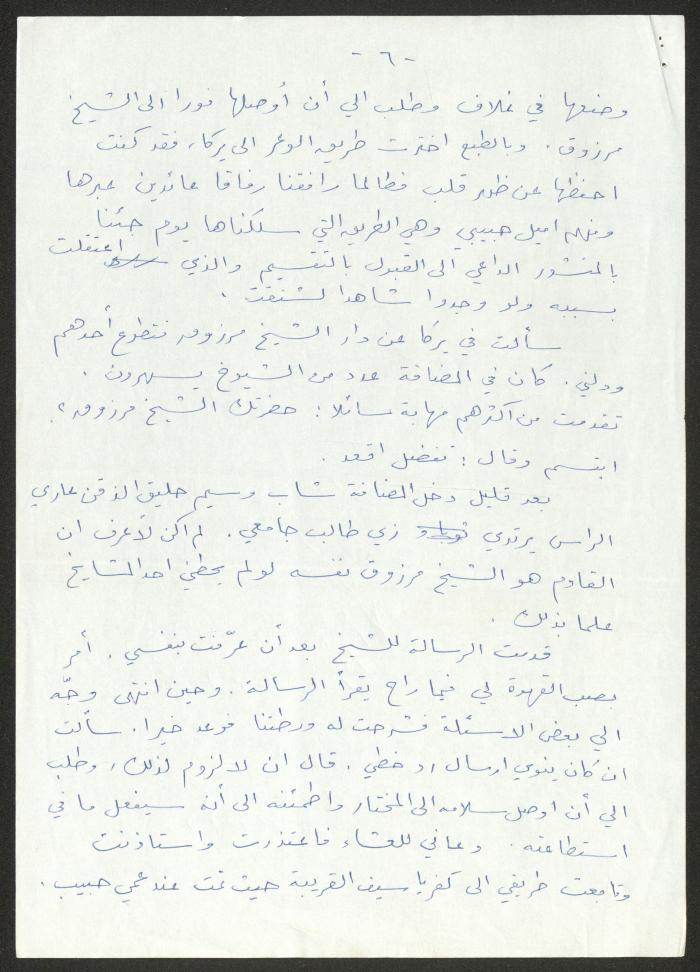 -٦-
وضعها في غلاف وطلب الي أن أُوصلها فورا الى الشيخ
مرزوق. وبالطبع اخترت طريق الوعر الى يركا، فقد كنت
احفظها عن ظهر قلب فطالما رافقنا رفاقا عائدين عبرها
ومنهم اميل حبيبي وهي الطريق التي سلكناها يوم جئنا
بالمنشور الداعي الى القبول بالتقسيم والذي اعتقلت
بسببه ولو وجدوا شاهدا لشنقت.
سألت في يركا عن دار الشيخ مرزوق فتطوع أحدهم
ودلني. كان في المضافة عدد من الشيوخ يسهرون.
تقدمت من اكثرهم مهابة سائلا: حضرتك الشيخ مرزوق؟
ابتسم وقال: تفضل اقعد.
بعد قليل دخل المضافة شاب وسيم حليق الذقن عاري
الراس يرتدي زي طالب جامعي. لم اكن لأعرف ان
القادم هو الشيخ مرزوق نفسه لو لم يحطني احد المشايخ
علما بذلك.
قدمت الرسالة للشيخ بعد أن عرّفت بنفسي. أمر
بصب القهوة لي فيما راح يقرأ الرسالة. وحين انتهى وجّه
الي بعض الاسئلة فشرحت له ورطتنا فوعد خيرا. سألت
ان كان ينوي ارسال رد خطي. قال ان لا لزوم لذلك، وطلب
الي أن اوصل سلامه الى المختار واطمئنه الى أنه سيفعل ما في
استطاعته. دعاني للعشاء فاعتذرت واستاذنت
وتابعت طريقي الى كفرياسيف القريبة حيث نمت عند عمي حبيب.